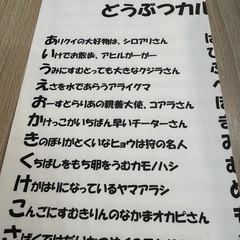 どうぶつカル
ありクイの大好物は、シロアリさん
いけでお散歩、アヒルがーがー
うみにすむとっても大きなクジラさん
えさを水であらうアライグマ
おーすとらりあの親善大使、コアラさん
かけっこがいちばん早いチーターさん
きのぼりがとくいなヒョウは狩の名人
くちばしをもち卵をうむカモノハシ
けがはりになっているヤマアラシ
こんごにすむきりんのなかまオカピさん
は
ひ
ふ
へ